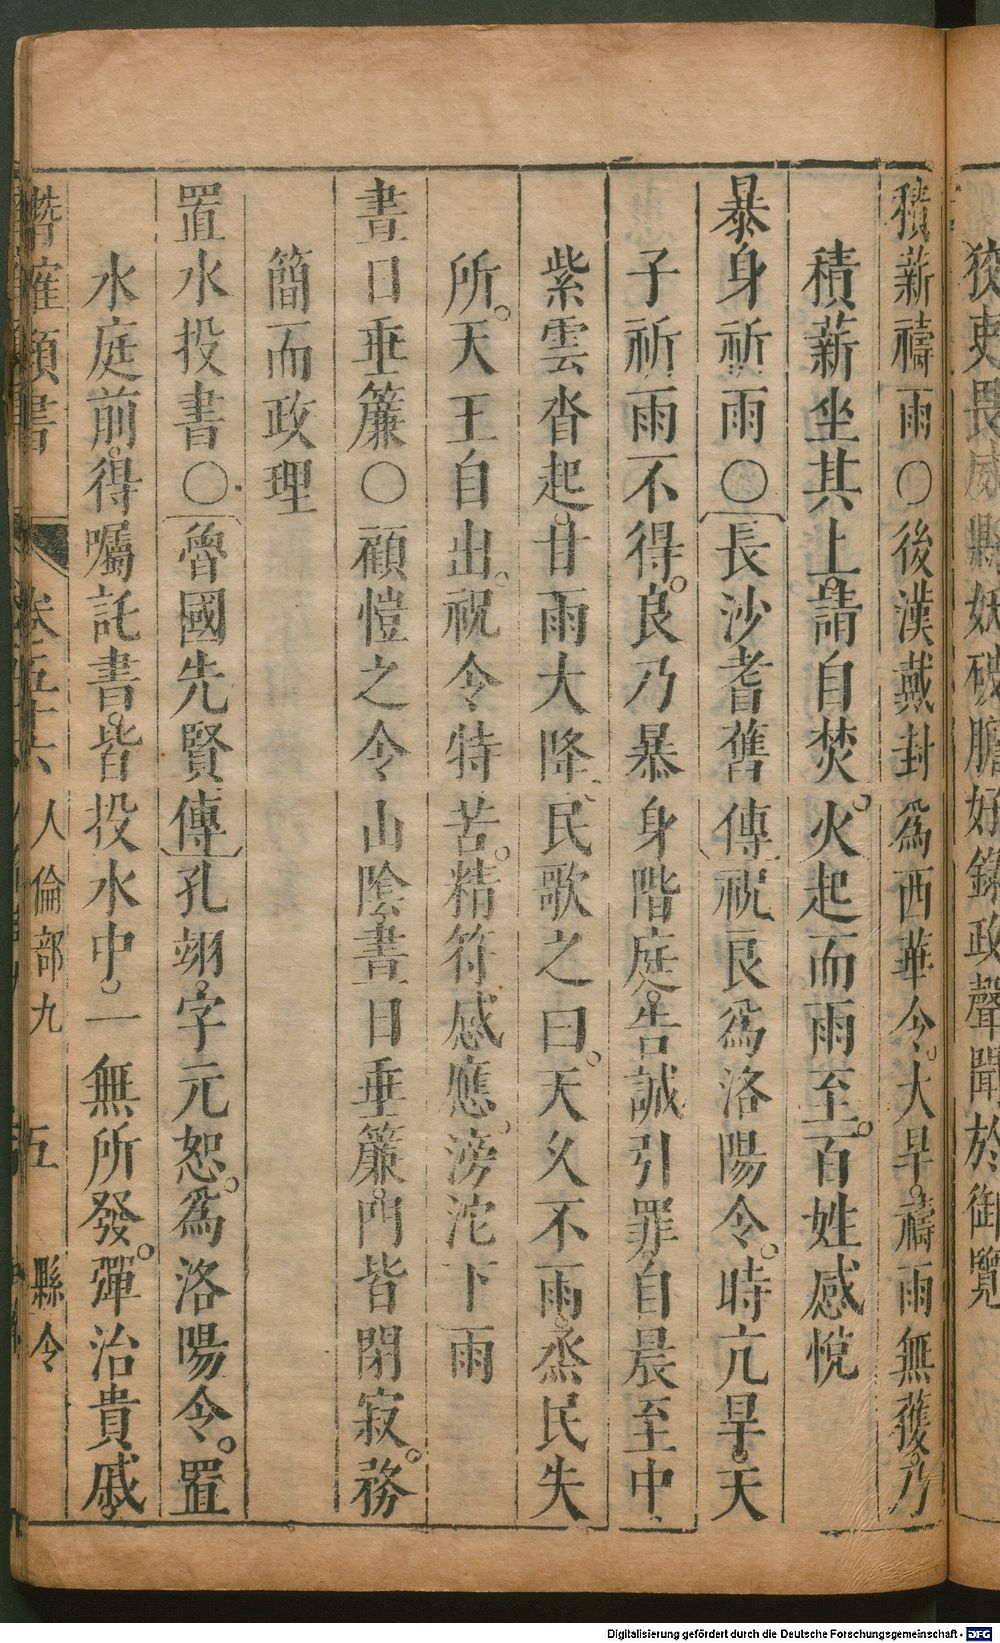 狡吏畏威縣妖破膽好錄政聲聞於御覽
積薪禱雨○後漢戴封爲西華令大旱禱雨無獲乃
積薪坐其上請自焚火起而雨至百姓感悅
暴身祈雨○長沙耆舊傳祝良爲洛陽令時亢旱天
子祈雨不得良乃暴身階庭告誠引罪自晨至中
紫雲沓起甘雨大降民歌之曰天久不雨烝民失
所天王自出祝令特苦精符感應滂沱下雨
晝日垂簾○顧愷之令山陰晝日垂簾門皆閉寂務
簡而政理
置水投書○魯國先賢傳孔翊字元恕爲洛陽令置
水庭前得囑託書皆投水中一無所發彈治貴戚
潛確類書 卷五十六 人倫部九 五 縣令
Digitalisierung gefördert durch die Deutsche Forschungsgemeinschaft - DFG